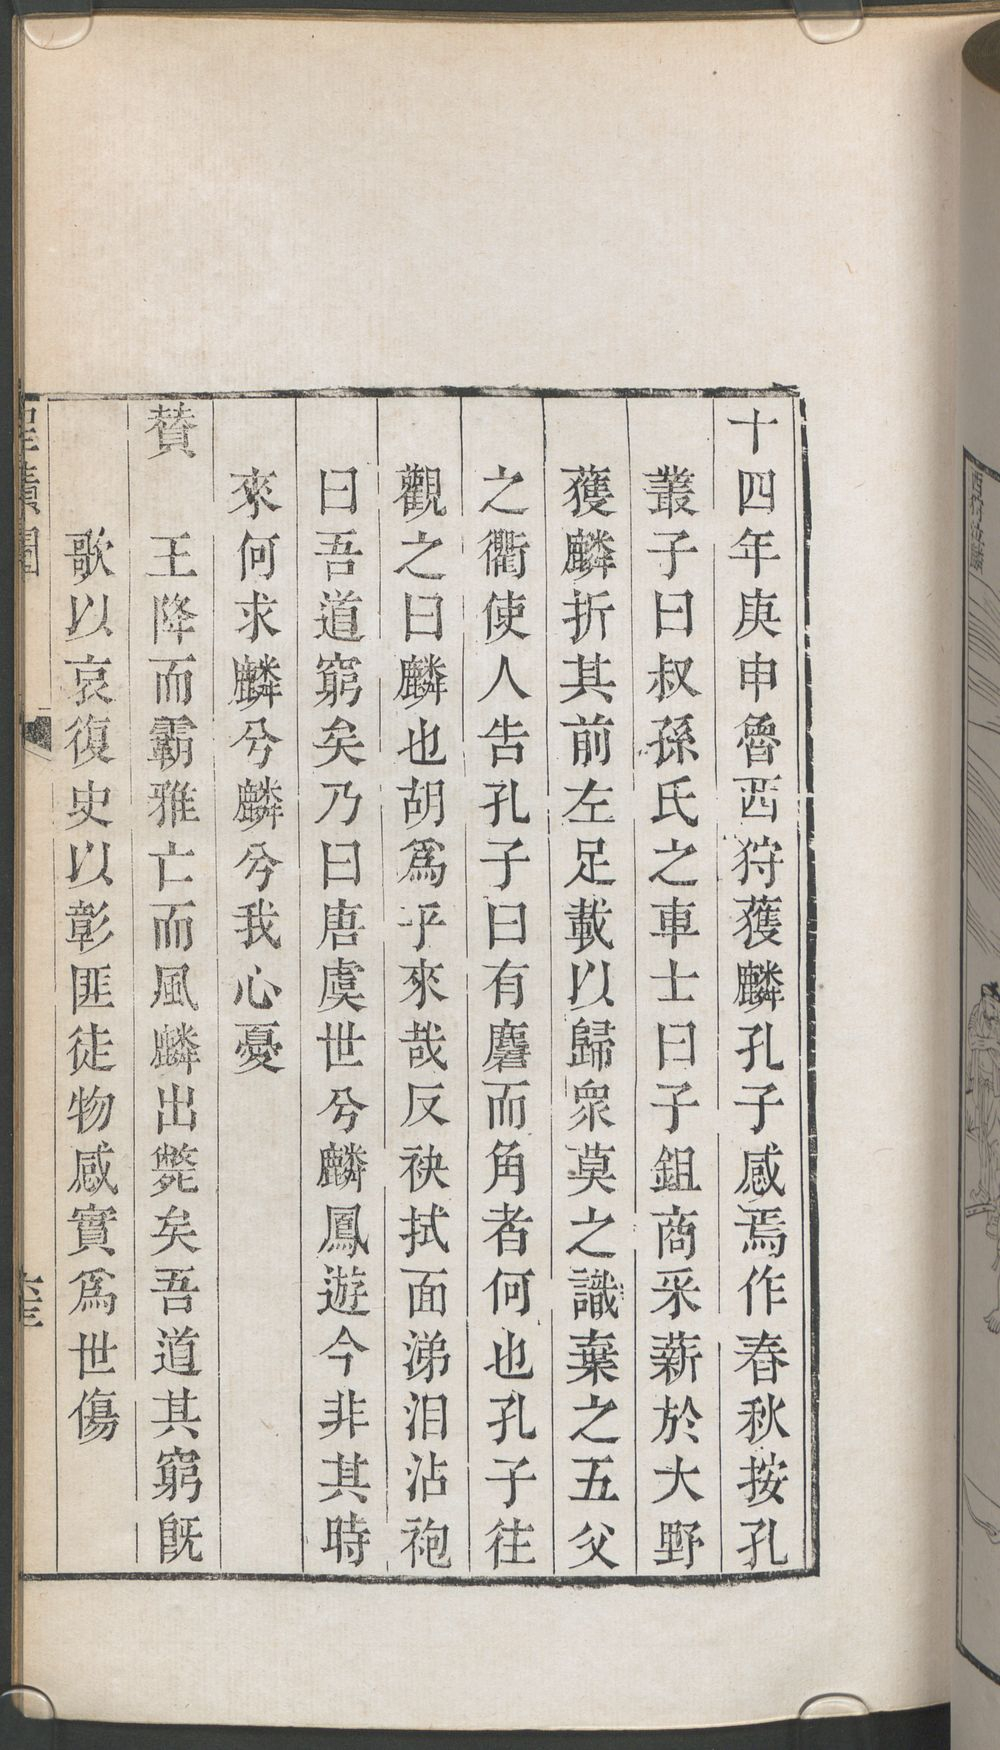 十四年庚申魯西狩獲麟孔子感焉作春秋按孔
叢子曰叔孫氏之車士曰子鉏商采薪於大野
獲麟折其前左足載以歸衆莫之識棄之五父
之衢使人告孔子曰有麏而角者何也孔子往
觀之曰麟也胡爲乎來哉反袂拭面涕泪沾袍
曰吾道窮矣乃曰唐虞世兮麟鳳遊今非其時
來何求麟兮麟兮我心憂
賛 王降而霸雅亡而風麟出斃矣吾道其窮旣
歌以哀復史以彰匪徒物感實爲世傷
聖蹟圖